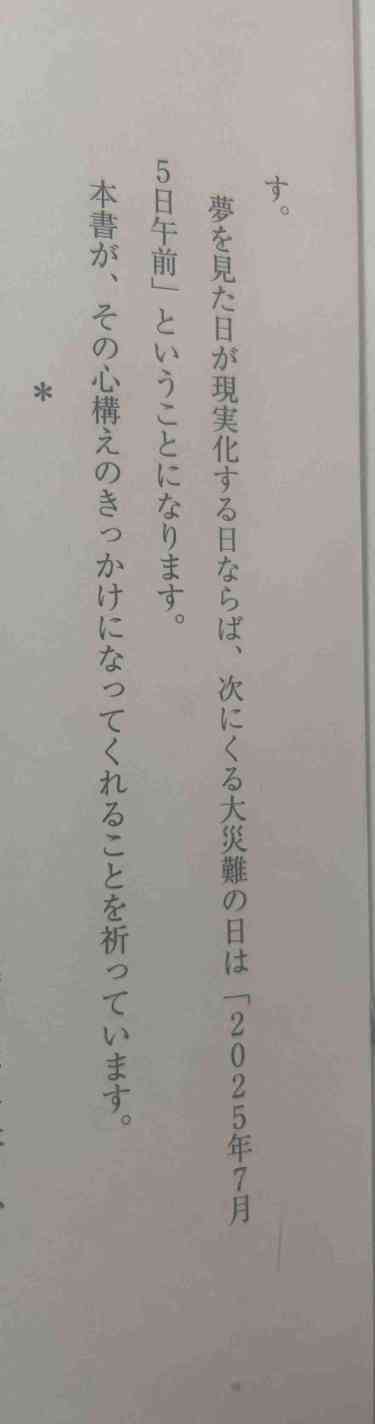 す。
夢を見た日が現実化する日ならば、次にくる大災難の日は「2025年7月
5日午前」ということになります。
本書が、その心構えのきっかけになってくれることを祈っています。
*